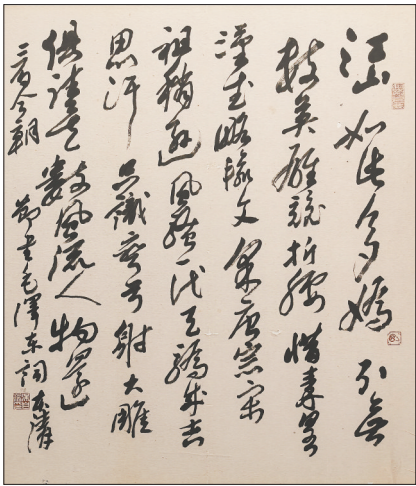 江山如此多嬌引無
數英雄競折腰惜秦皇
漢武略輸文采唐宗宋
祖稍遜風騷一代天驕成吉
思汗只識彎弓射大雕
俱往矣數風流人物還
看今朝 節書毛澤東詞